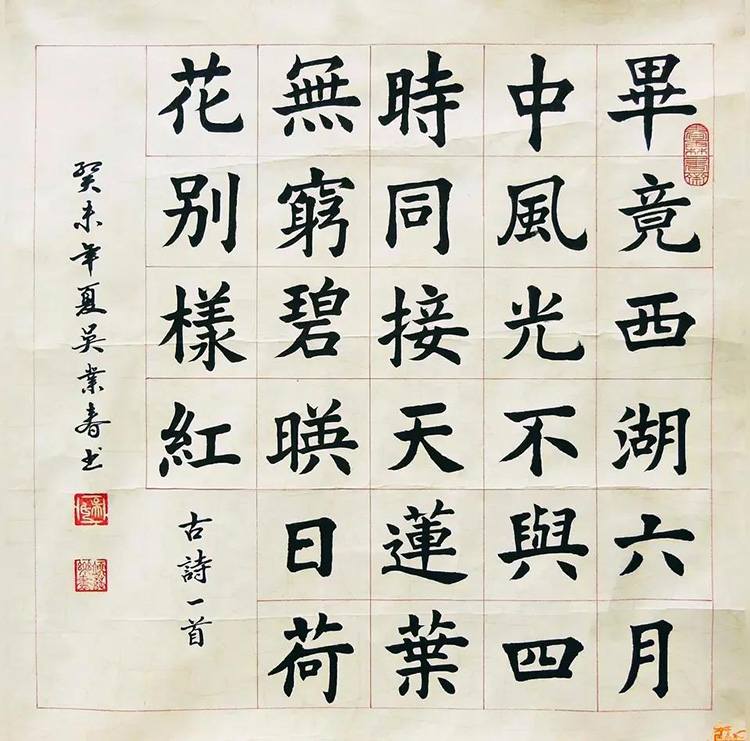 畢竟西湖六月
中風光不與四
時同接天蓮葉
無窮碧暎日荷
花别樣紅
古詩一首
癸未年夏吴業春书